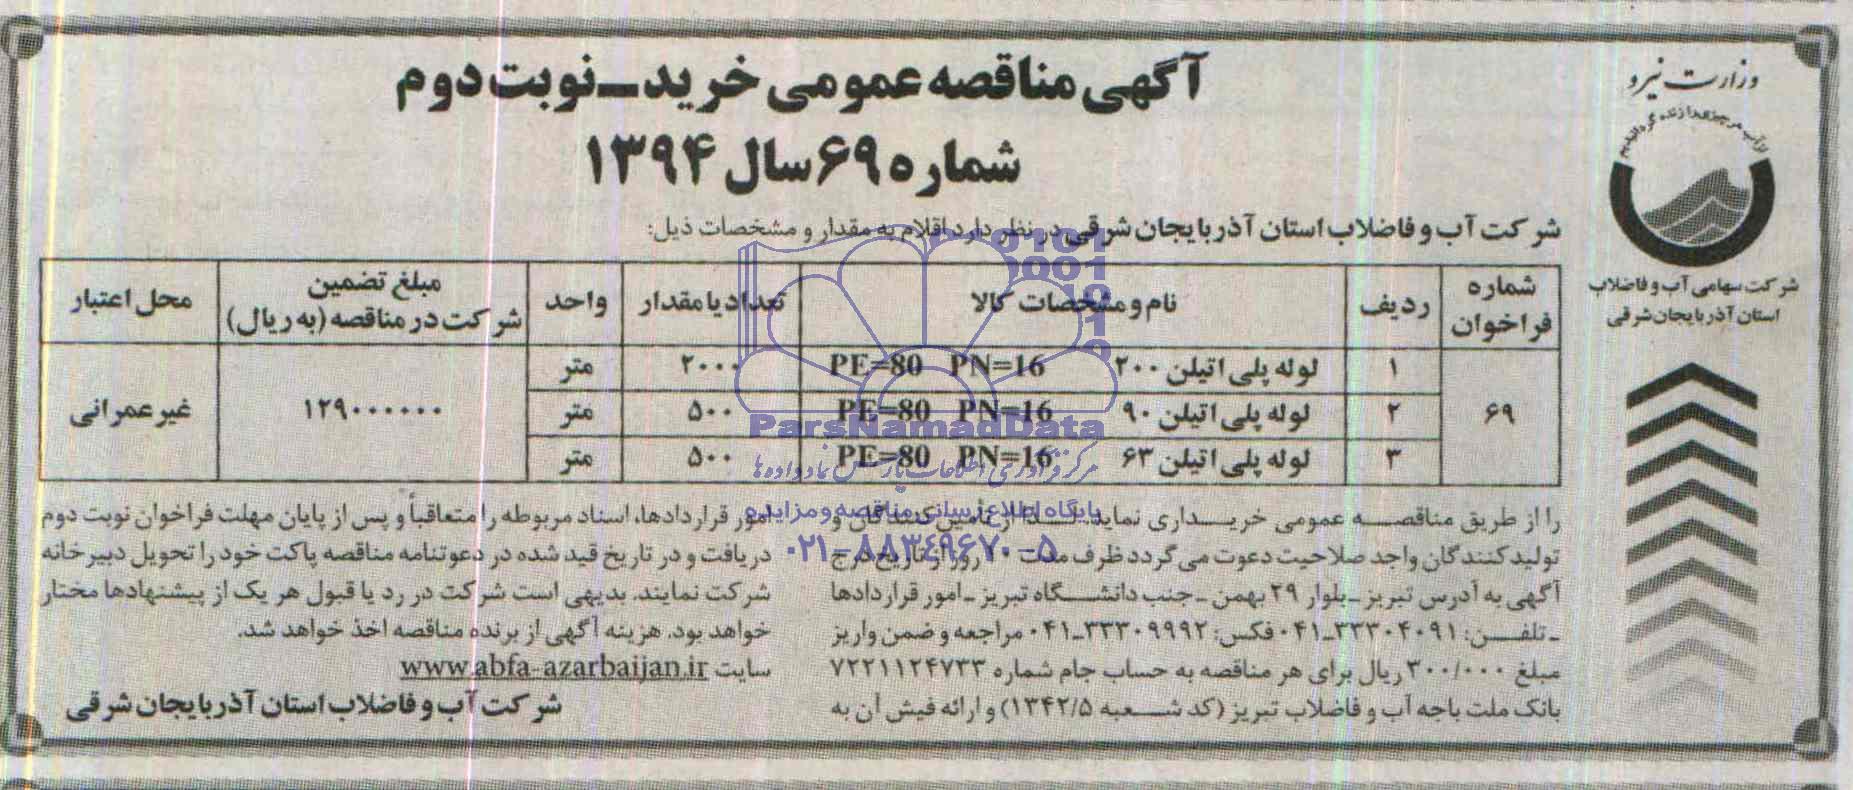 وزارت نیرو
از آب هر چیزی را زنده گردانیدیم
شرکت سهامی آب و فاضلاب
استان آذربایجان شرقی
آگهی مناقصه عمومی خرید_نوبت دوم
شماره ۶۹ سال ۱۳۹۴
شرکت آب و فاضلاب استان آذربایجان شرقی در نظر دارد اقلام به مقدار و مشخصات ذیل:
شماره فراخوان ردیف نام و مشخصات کالا تعداد یا مقدار واحد مبلغ تضمین شرکت در مناقصه (به ریال) محل اعتبار
۶۹ ۱ لوله پلی اتیلن ۲۰۰ PE=80 PN=16 ۲۰۰۰ متر ۱۲۹۰۰۰۰۰۰ غیر عمرانی
۲ لوله پلی اتیلن ۹۰ PE=80 PN=16 ۵۰۰ متر
۳ لوله پلی اتیلن ۶۳ PE=80 PN=16 ۵۰۰ متر
را از طریق مناقصه عمومی خریداری نماید. لذا از تأمین کنندگان و
تولیدکنندگان واجد صلاحیت دعوت می گردد ظرف مدت روز از تاریخ درج
آگهی به آدرس تبریز_بلوار ۲۹ بهمن_جنب دانشگاه تبریز_امور قراردادها
_تلفن: ۳۳۳۰۴۰۹۱_۰۴۱ فکس: ۳۳۳۰۹۹۹۲_۰۴۱ مراجعه و ضمن واریز
مبلغ ۳۰۰/۰۰۰ ریال برای هر مناقصه به حساب جام شماره ۷۲۲۱۱۲۴۷۳۳
بانک ملت باجه آب و فاضلاب تبریز (کد شعبه ۱۳۴۲/۵) و ارائه فیش آن به
امور قراردادها، اسناد مربوطه را متعاقباً و پس از پایان مهلت فراخوان نوبت دوم
دریافت و در تاریخ قید شده در دعوتنامه مناقصه پاکت خود را تحویل دبیرخانه
شرکت نمایند. بدیهی است شرکت در رد یا قبول هر یک از پیشنهادها مختار
خواهد بود. هزینه آگهی از برنده مناقصه اخذ خواهد شد.
سایت www.abfa-azarbaijan.ir
شرکت آب و فاضلاب استان آذربایجان شرقی
ParsNamadData
مرکز فرآوری اطلاعات پارس نماد داده ها
پایگاه اطلاع رسانی مناقصه و مزایده
۰۲۱-۸۸۳۴۹۶۷۰-۵